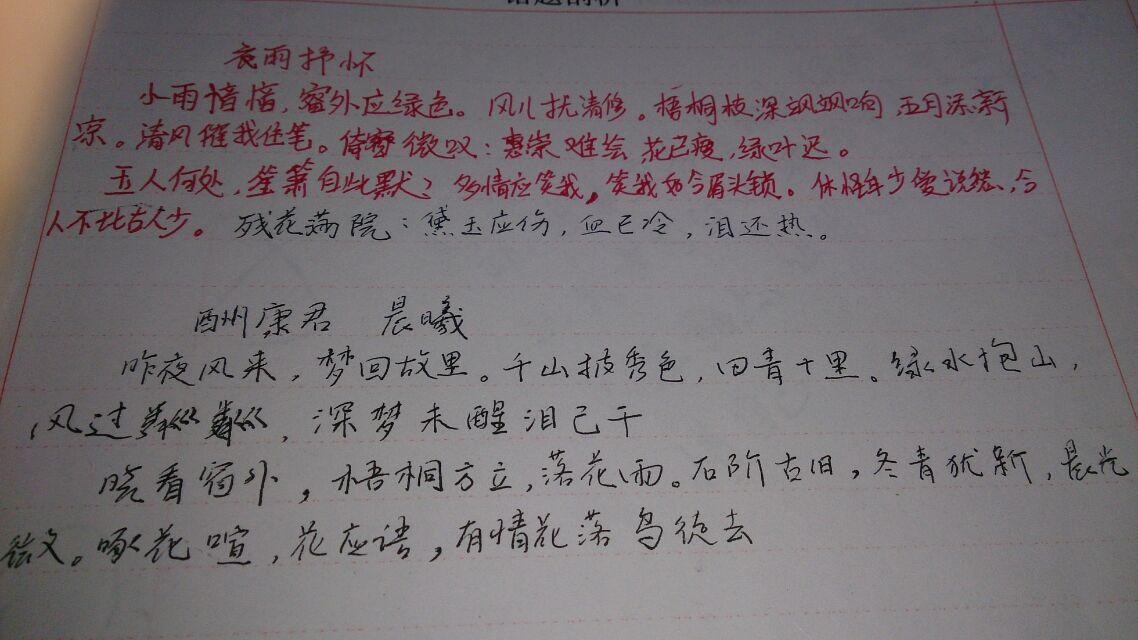 话题剖析
哀雨抒怀
小雨愔愔，窗外应绿色。风儿扰清修。梧桐枝深飒飒响，五月添新
凉。清风催我住笔。倚窗微叹：蕙崇难绘花已瘦，绿叶迟。
玉人何处，笙箫自此默？多情应笑我，笑我如今眉头锁。休怪年少爱说愁、今
人不比古人少。残花满院：黛玉应伤，血已冷，泪还热。
酬康君 晨曦
昨夜风来，梦回故里。千山披秀色，田青十里。绿水抱山，
风过粼粼，深梦未醒泪已干
晓看窗外，梧桐方立，落花雨。石阶古旧，冬青犹新，晨光
微。啄花喧，花应语，有情花落鸟徒去